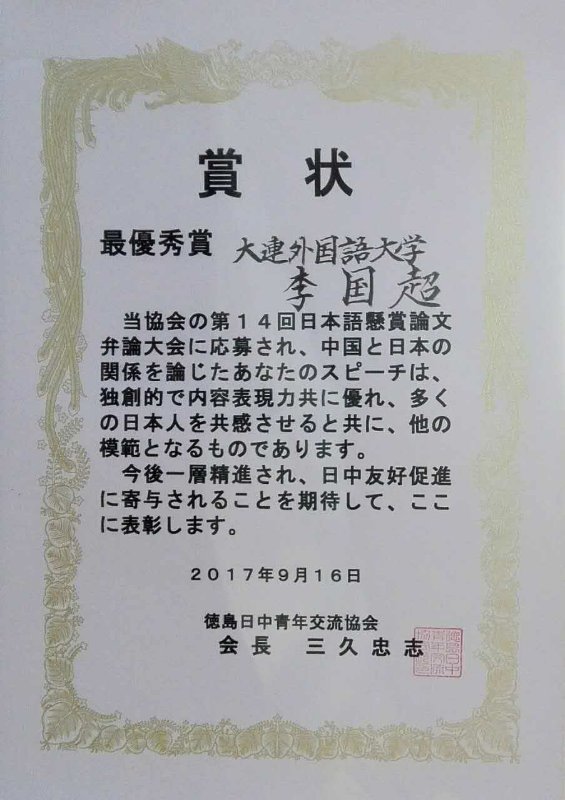 賞状
最優秀賞 大連外国語大学
李国超
当協会の第14回日本語懸賞論文
弁論大会に応募され、中国と日本の
関係を論じたあなたのスピーチは、
独創的で内容表現力共に優れ、多く
の日本人を共感させると共に、他の
模範となるものであります。
今後一層精進され、日中友好促進
に寄与されることを期待して、ここ
に表彰します。
2017年9月16日
徳島日中青年交流協会
会長 三久忠志